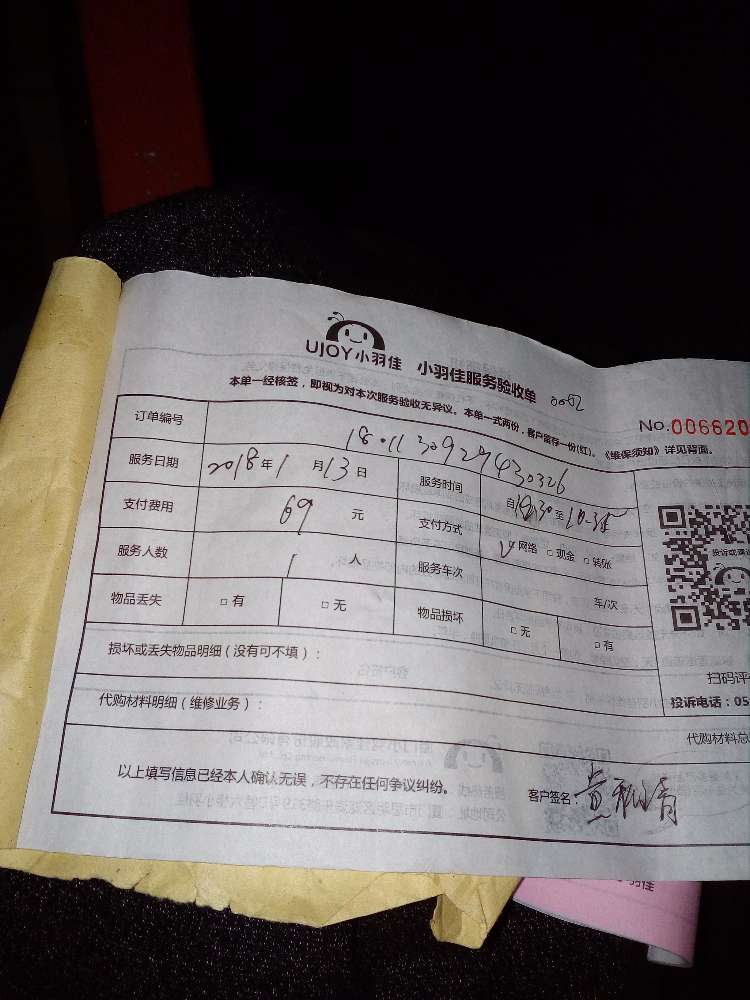 UJOY小羽佳 小羽佳服务验收单 0062
本单一经核签，即视为对本次服务验收无异议。本单一式两份，客户留存一份(红)。《维保须知》详见背面。
No.006620
订单编号 18.01130929430326
服务日期 2018年1月13日 服务时间 自 至
支付费用 69 元 支付方式 网络 □现金 □转账
服务人数 1 人 服务车次 车/次
物品丢失 □有 □无 物品损坏 □无 □有
损坏或丢失物品明细（没有可不填）：
代购材料明细（维修业务）：
代购材料总
以上填写信息已经本人确认无误，不存在任何争议纠纷。 客户签名：
扫码评
投诉电话：05
羽佳